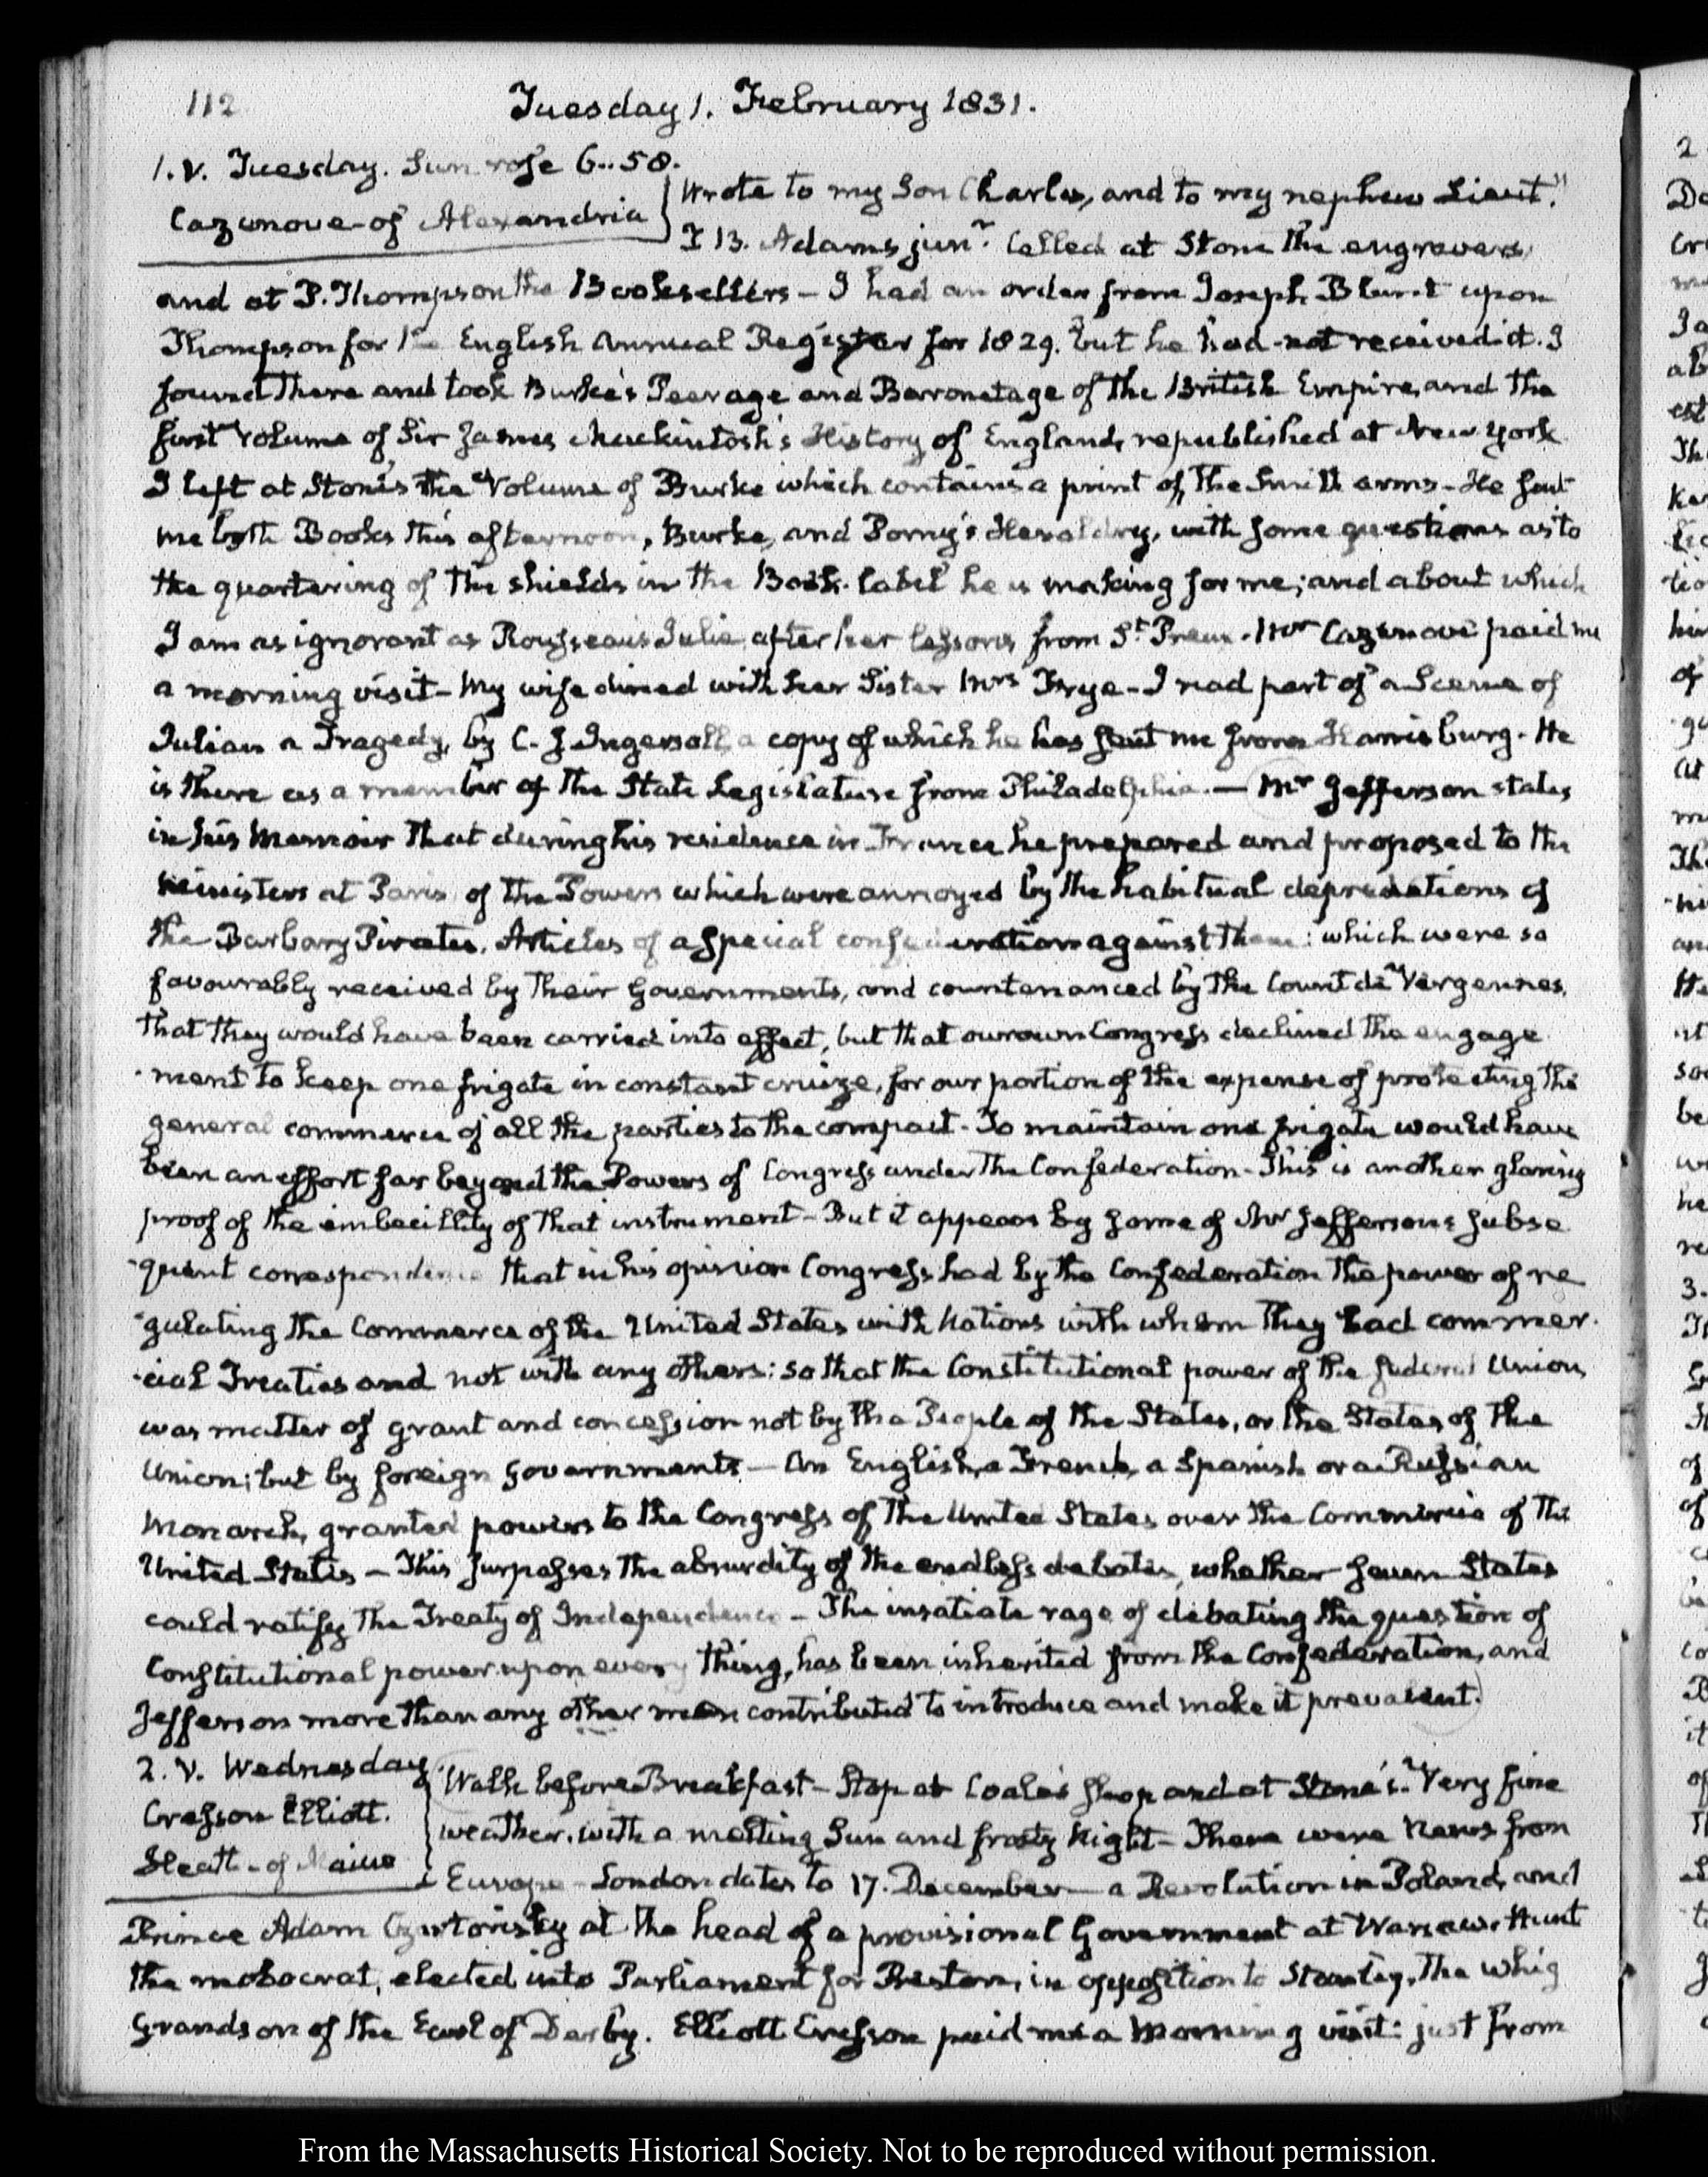 112
Tuesday 1. February 1831.
1. V. Tuesday. Sun rose 6..58.
Cazenove-of Alexandria
Wrote to my Son Charles, and to my nephew Lieut.t
T B. Adams junr. Called at Stone the engravers
and at P. Thompson the Booksellers — I had an order from Joseph Blunt upon
Thompson for the English Annual Register for 1829. but he had not received it. I
found there and took Burke's Peerage and Baronetage of the British Empire, and the
first volume of Sir James Mackintosh's History of England, republished at New York
I left at Stone's the Volume of Burke which contains a print of the Smith arms — He sent
me both Books this afternoon, Burke, and Porny's Heraldry, with some questions as to
the quartering of the shields in the Book-label he is making for me; and about which
I am as ignorant as Rousseau's Julie after her lessons from St. Preux. Mr Cazenove paid me
a morning visit — My wife dined with her Sister Mrs Frye — I read part of a Scene of
Julian a Tragedy, by C. J. Ingersoll, a copy of which he has sent me from Harrisburg. He
is there as a member of the State Legislature from Philadelphia. — Mr Jefferson states
in his Memoir that during his residence in France he prepared and proposed to the
Ministers at Paris of the Powers which were annoyed by the habitual depredations of
the Barbary Pirates, Articles of a special confederation against them: which were so
favourably received by their Governments, and countenanced by the Count de Vergennes,
that they would have been carried into effect, but that our own Congress declined the engage
-ment to keep one frigate in constant cruize, for our portion of the expense of protecting the
general commerce of all the parties to the compact. To maintain one frigate would have
been an effort far beyond the Powers of Congress under the Confederation — This is another glaring
proof of the imbecillity of that instrument — But it appears by some of Mr Jefferson's subse
-quent correspondence that in his opinion Congress had by the Confederation the power of re
-gulating the Commerce of the United States with Nations with whom they had commer
-cial Treaties and not with any others: so that the Constitutional power of the federal Union,
was matter of grant and concession not by the People of the States, or the States of the
Union; but by foreign Governments. — An English, a French, a Spanish or a Russian
Monarch, granted powers to the Congress of the United States over the Commerce of the
United States — This surpasses the absurdity of the endless debates, whether seven States
could ratify the Treaty of Independence — The insatiate rage of debating the question of
Constitutional power upon every thing, has been inherited from the Confederation, and
Jefferson more than any other man contributed to introduce and make it prevalent.
2. V. Wednesday.
Cresson Elliott.
Heath - of Maine
Walk before Breakfast — Stop at Coale's shop and at Stone's. Very fine
weather, with a melting Sun and frosty Night — There were News from
Europe — London dates to 17. December — a Revolution in Poland, and
Prince Adam Czartorisky at the head of a provisional Government at Warsaw. Hunt
the mobocrat, elected into Parliament for Preston, in opposition to Stanley, the whig
Grandson of the Earl of Darby. Elliott Cresson paid me a morning visit: just from
From the Massachusetts Historical Society. Not to be reproduced without permission.